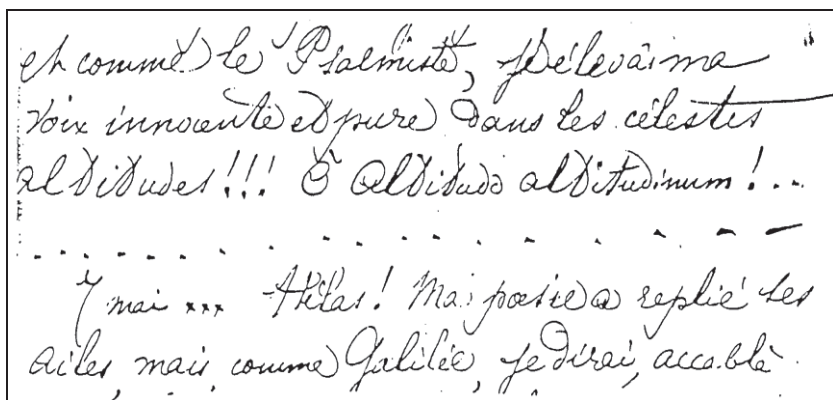 et comme le Psalmiste, j'élevai ma
voix innocente et pure dans les célestes
altitudes!!! Ô Altitudo altitudinum!..
. . . . . . . . . . . . . . . . .
7 mai xxx Hélas! Ma poésie a replié ses
ailes, mais, comme Galilée, je dirai, accablé